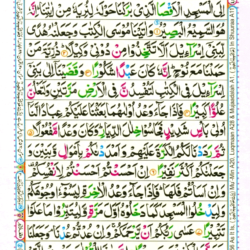 إِلَى الْمَسْجِدِ الْأَقْصَا الَّذِي بَارَكْنَا حَوْلَهُ لِنُرِيَهُ مِنْ آيَاتِنَا إِنَّهُ
هُوَ السَّمِيعُ الْبَصِيرُ وَآتَيْنَا مُوسَى الْكِتَابَ وَجَعَلْنَاهُ هُدًى
لِبَنِي إِسْرَائِيلَ أَلَّا تَتَّخِذُوا مِنْ دُونِي وَكِيلًا ذُرِّيَّةَ مَنْ
حَمَلْنَا مَعَ نُوحٍ إِنَّهُ كَانَ عَبْدًا شَكُورًا وَقَضَيْنَا إِلَى بَنِي
إِسْرَائِيلَ فِي الْكِتَابِ لَتُفْسِدُنَّ فِي الْأَرْضِ مَرَّتَيْنِ وَلَتَعْلُنَّ عُلُوًّا
كَبِيرًا فَإِذَا جَاءَ وَعْدُ أُولَاهُمَا بَعَثْنَا عَلَيْكُمْ عِبَادًا لَنَا
أُولِي بَأْسٍ شَدِيدٍ فَجَاسُوا خِلَالَ الدِّيَارِ وَكَانَ وَعْدًا مَفْعُولًا
ثُمَّ رَدَدْنَا لَكُمُ الْكَرَّةَ عَلَيْهِمْ وَأَمْدَدْنَاكُمْ بِأَمْوَالٍ وَبَنِينَ وَ
جَعَلْنَاكُمْ أَكْثَرَ نَفِيرًا إِنْ أَحْسَنْتُمْ أَحْسَنْتُمْ لِأَنْفُسِكُمْ
وَإِنْ أَسَأْتُمْ فَلَهَا فَإِذَا جَاءَ وَعْدُ الْآخِرَةِ لِيَسُوءُوا وُجُوهَكُمْ
وَلِيَدْخُلُوا الْمَسْجِدَ كَمَا دَخَلُوهُ أَوَّلَ مَرَّةٍ وَلِيُتَبِّرُوا مَا عَلَوْا
تَتْبِيرًا عَسَى رَبُّكُمْ أَنْ يَرْحَمَكُمْ وَإِنْ عُدْتُمْ عُدْنَا وَ